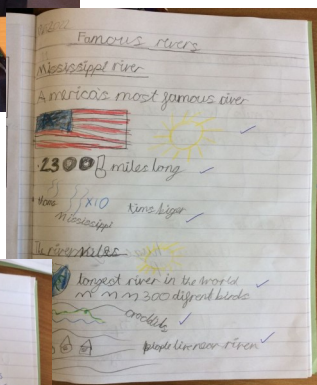 Famous rivers
Mississippi river
America's most famous river
2300 miles long
x10 times biger
Mississippi
The river Nile
longest river in the world
300 difrent birds
crocodile
people live near river